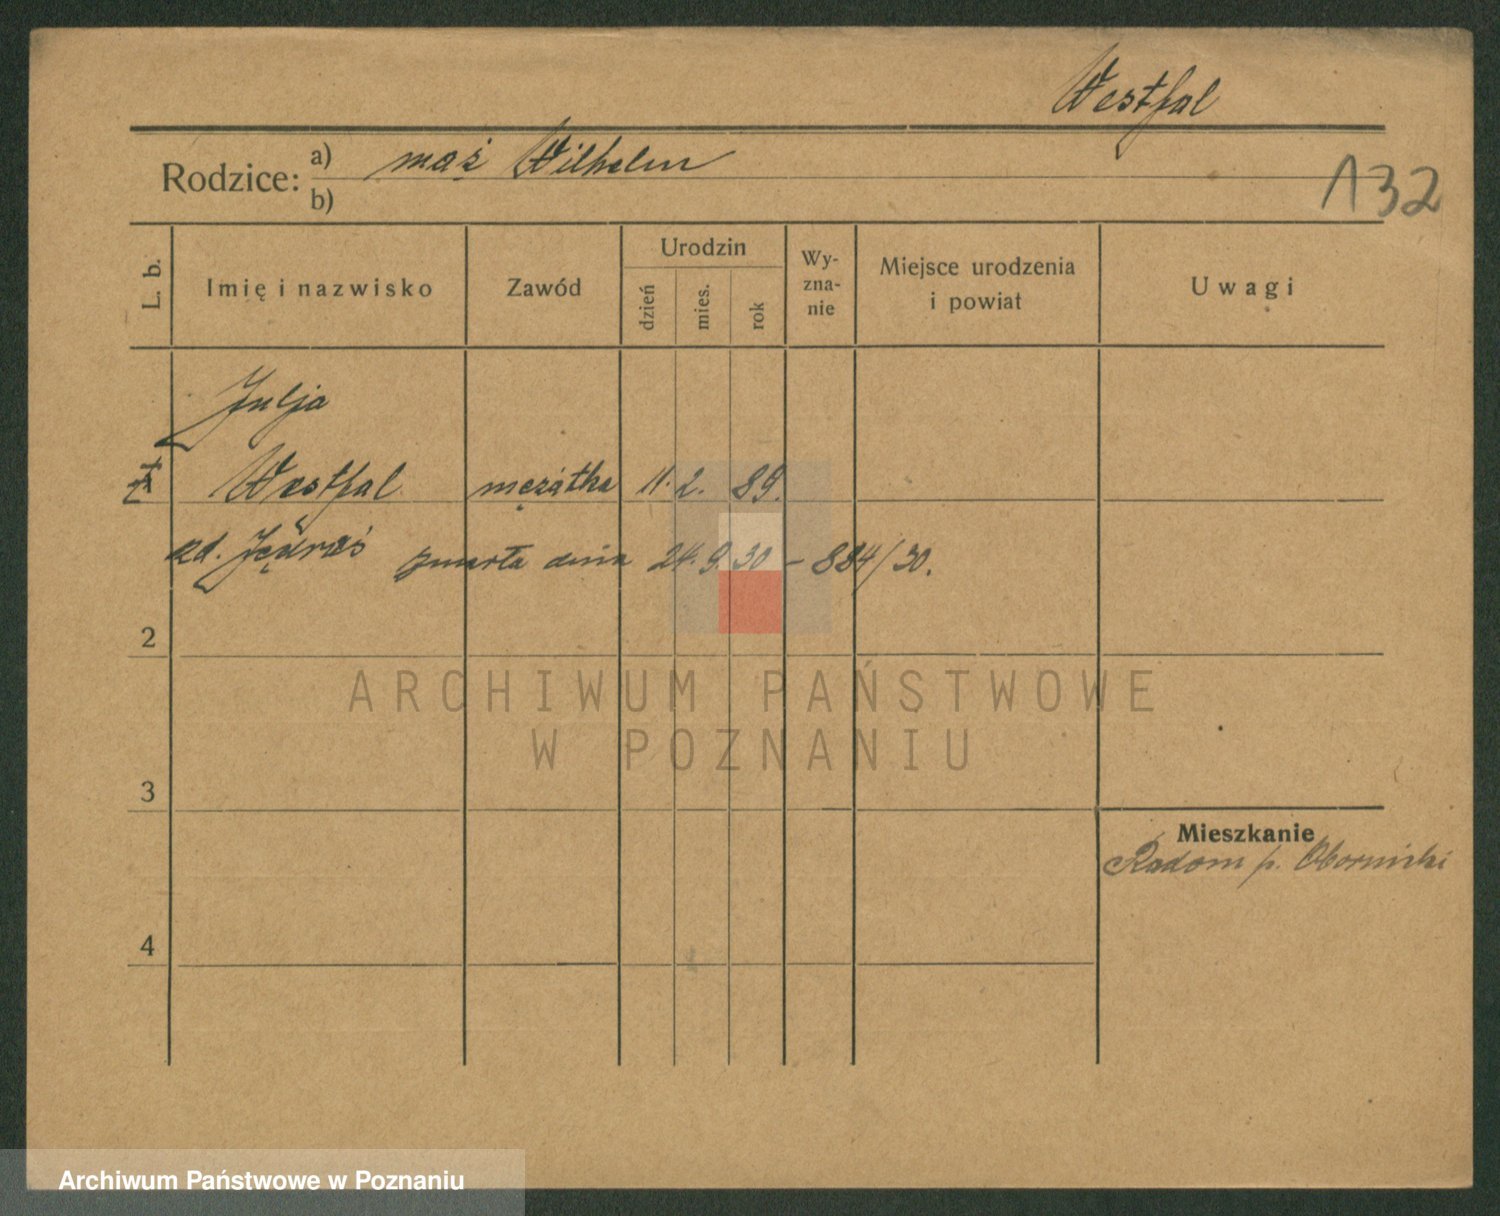 Westfal
Rodzice: a) mąż Wilhelm
b)
132
L. b.
Imię i nazwisko
Zawód
Urodzin
dzień
mies.
rok
Wy-
zna-
nie
Miejsce urodzenia
i powiat
Uwagi
Julja
Westfal mężatka 11. 2. 89.
zmarła dnia 24. 9. 30 – 884/30.
2
3
4
Mieszkanie
Radom p. Obornicki
ARCHIWUM PAŃSTWOWE
W POZNANIU
Archiwum Państwowe w Poznaniu